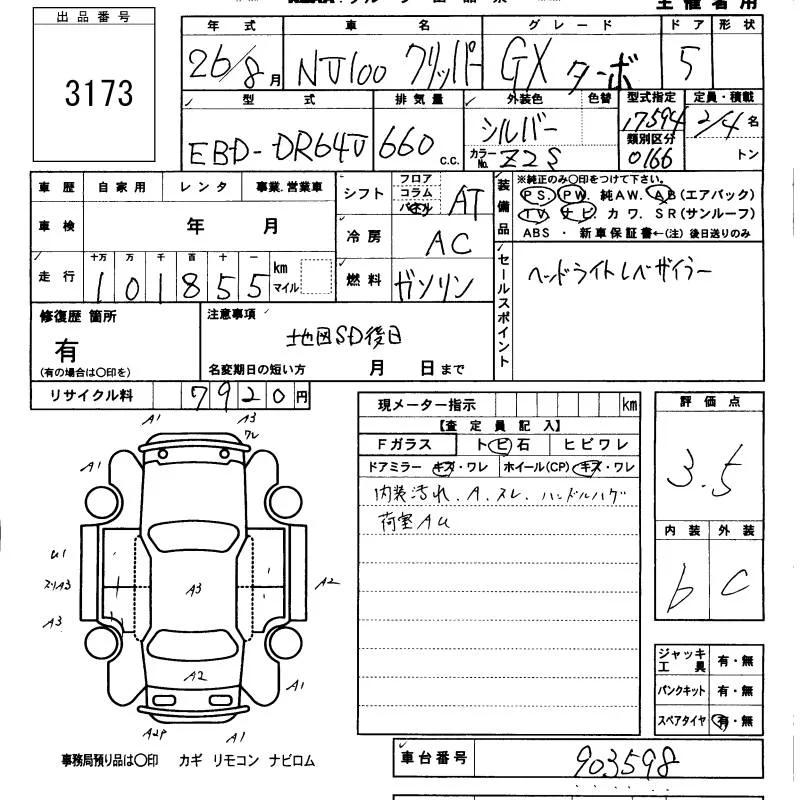 出品番号
3173
主催者用
年式 車名 グレード ドア 形状
26/8月 NV100 クリッパー GX ターボ 5
型式 排気量 外装色 色替 型式指定 定員・積載
EBD-DR64V 660 c.c. シルバー 17594 2/4名
カラーNo. Z2S 類別区分 0166 トン
車歴 自家用 レンタ 事業.営業車
車検 年 月
走行 十万 万 千 百 十 一
101855 km マイル
シフト フロア コラム パネル AT
冷房 AC
燃料 ガソリン
装備品
※純正のみ○印をつけて下さい。
PS. PW. 純AW. AB(エアバック)
TV ナビ カワ. SR(サンルーフ)
ABS ・ 新車保証書←(注) 後日送りのみ
セールスポイント
ヘッドライトレベライザー
修復歴 箇所
有
(有の場合は○印を)
注意事項
地図SD後日
名変期日の短い方 月 日まで
リサイクル料 7920円
現メーター指示 km
【査定員記入】
Fガラス トビ石 ヒビワレ
ドアミラー キズ・ワレ ホイール(CP) キズ・ワレ
内装汚れ.A.スレ.ハンドルハゲ
荷室AU
評価点
3.5
内装 外装
b C
ジャッキ工具 有・無
パンクキット 有・無
スペアタイヤ 有・無
A1 A3
ワレ
A1
U1
スリA3
A3
A3
A2
A2
A1
A2P A1
事務局預り品は○印 カギ リモコン ナビロム
車台番号 903598